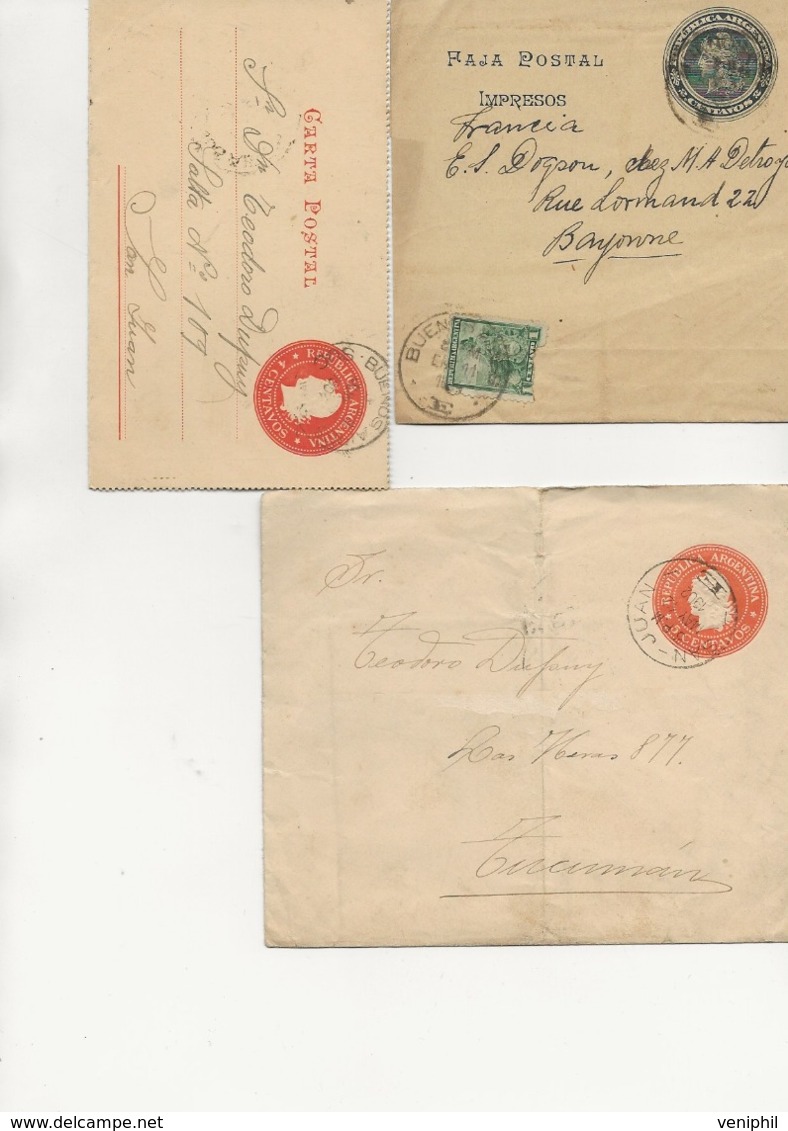 CARTA POSTAL
Sr. Dn Teodoro Dupuy
Salta Nº 109
San Juan
REPUBLICA ARGENTINA
4 CENTAVOS
BUENOS A
FAJA POSTAL
IMPRESOS
REPUBLICA ARGENTINA
2 CENTAVOS 2
Francia
E. S. Dogson, chez M. A Detroya
Rue Lormand 22
Bayonne
BUENO
REPUBLICA ARGENTINA
1
Sr.
Teodoro Dupuy
Las Heras 877.
Tucumán
REPUBLICA ARGENTINA
5 CENTAVOS
SAN-JUAN
www.veniphil.com